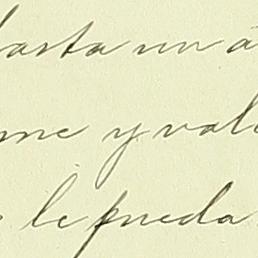 hasta un a
me y val
le pueda